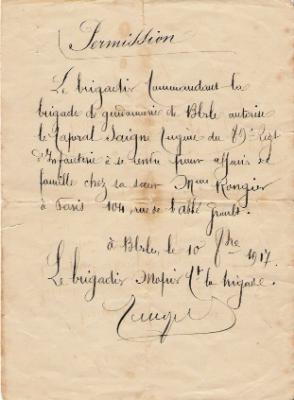 Permission
Le brigadier Commandant la
brigade de gendarmerie de Blle autorise
le Caporal Saigne Eugène du 89e Régt
d'Infanterie à se rendre pour affaires de
famille chez sa sœur Mme Rongier
à Paris 104, rue de l'abbé Groult.
à Blle, le 10 1917.
Le brigadier Ct la brigade.